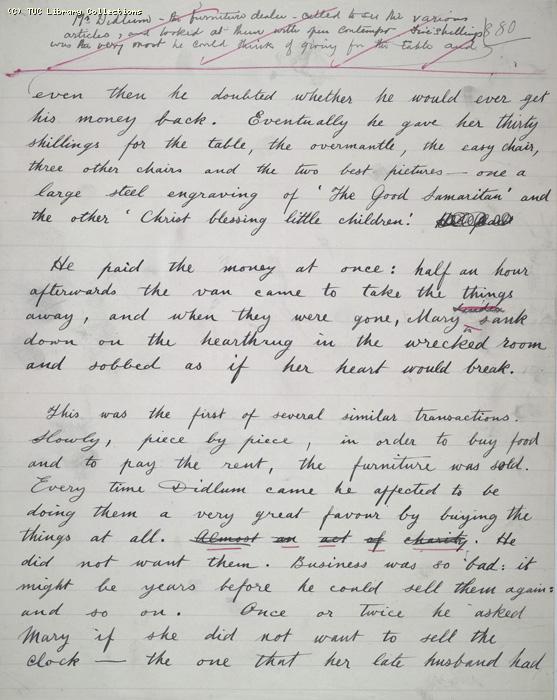 (C) TUC Library Collections
Mr Didlum - the furniture dealer - called to see the various
articles, and looked at them with open contempt. Five shillings
was the very most he could think of giving for the table and
880
even then he doubted whether he would ever get
his money back. Eventually he gave her thirty
shillings for the table, the overmantle, the easy chair,
three other chairs and the two best pictures — one a
large steel engraving of 'The Good Samaritan' and
the other 'Christ blessing little children'.
He paid the money at once: half an hour
afterwards the van came to take the things
away, and when they were gone, Mary sank
down on the hearthrug in the wrecked room
and sobbed as if her heart would break.
This was the first of several similar transactions.
Slowly, piece by piece, in order to buy food
and to pay the rent, the furniture was sold.
Every time Didlum came he affected to be
doing them a very great favour by buying the
things at all. Almost an act of charity. He
did not want them. Business was so bad: it
might be years before he could sell them again:
and so on. Once or twice he asked
Mary if she did not want to sell the
clock — the one that her late husband had